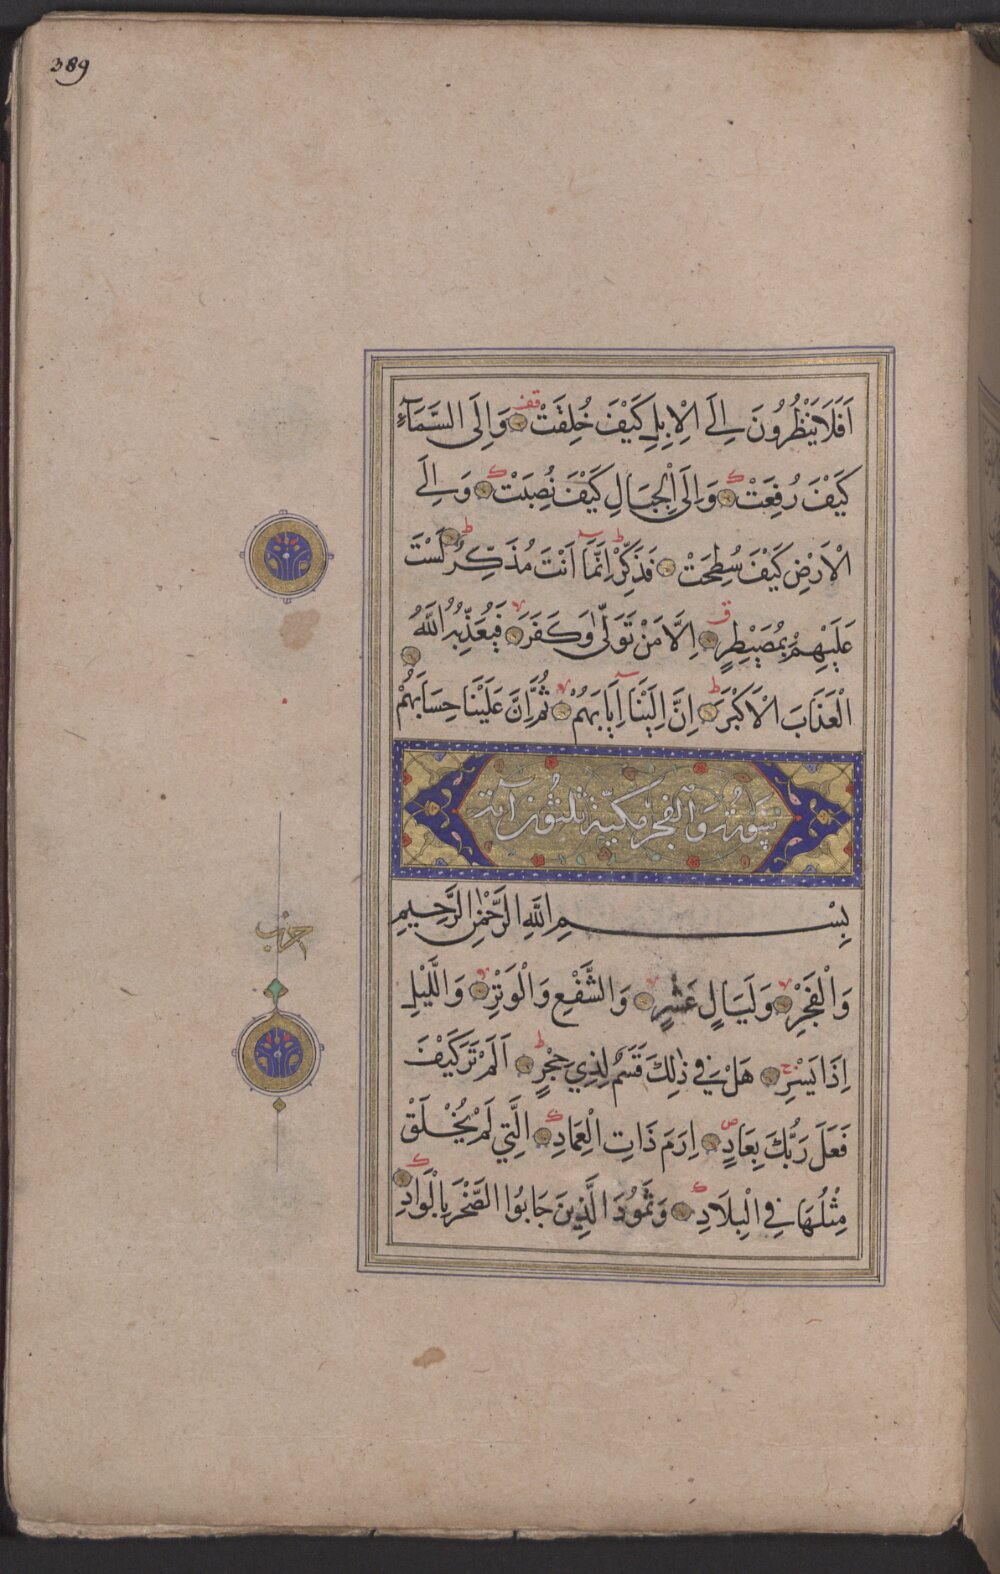 389
اَفَلَا يَنْظُرُونَ اِلَى الْاِبِلِ كَيْفَ خُلِقَتْ قف وَاِلَى السَّمَآءِ
كَيْفَ رُفِعَتْ ك وَاِلَى الْجِبَالِ كَيْفَ نُصِبَتْ ك وَاِلَى
الْاَرْضِ كَيْفَ سُطِحَتْ فَذَكِّرْ ط اِنَّمَآ اَنْتَ مُذَكِّرٌ ط لَسْتَ
عَلَيْهِمْ بِمُصَيْطِرٍ ق اِلَّا مَنْ تَوَلّٰى وَكَفَرَ لا فَيُعَذِّبُهُ اللّٰهُ
الْعَذَابَ الْاَكْبَرَ ط اِنَّ اِلَيْنَآ اِيَابَهُمْ لا ثُمَّ اِنَّ عَلَيْنَا حِسَابَهُمْ
سورة والفجر مكية ثلثون آية
بِسْمِ اللّٰهِ الرَّحْمٰنِ الرَّحِيمِ
حزب
وَالْفَجْرِ لا وَلَيَالٍ عَشْرٍ لا وَالشَّفْعِ وَالْوَتْرِ لا وَالَّيْلِ
اِذَا يَسْرِ ج هَلْ فِي ذٰلِكَ قَسَمٌ لِذِي حِجْرٍ ط اَلَمْ تَرَ كَيْفَ
فَعَلَ رَبُّكَ بِعَادٍ ص اِرَمَ ذَاتِ الْعِمَادِ ك الَّتِي لَمْ يُخْلَقْ
مِثْلُهَا فِي الْبِلَادِ ك وَثَمُودَ الَّذِينَ جَابُوا الصَّخْرَ بِالْوَادِ ك